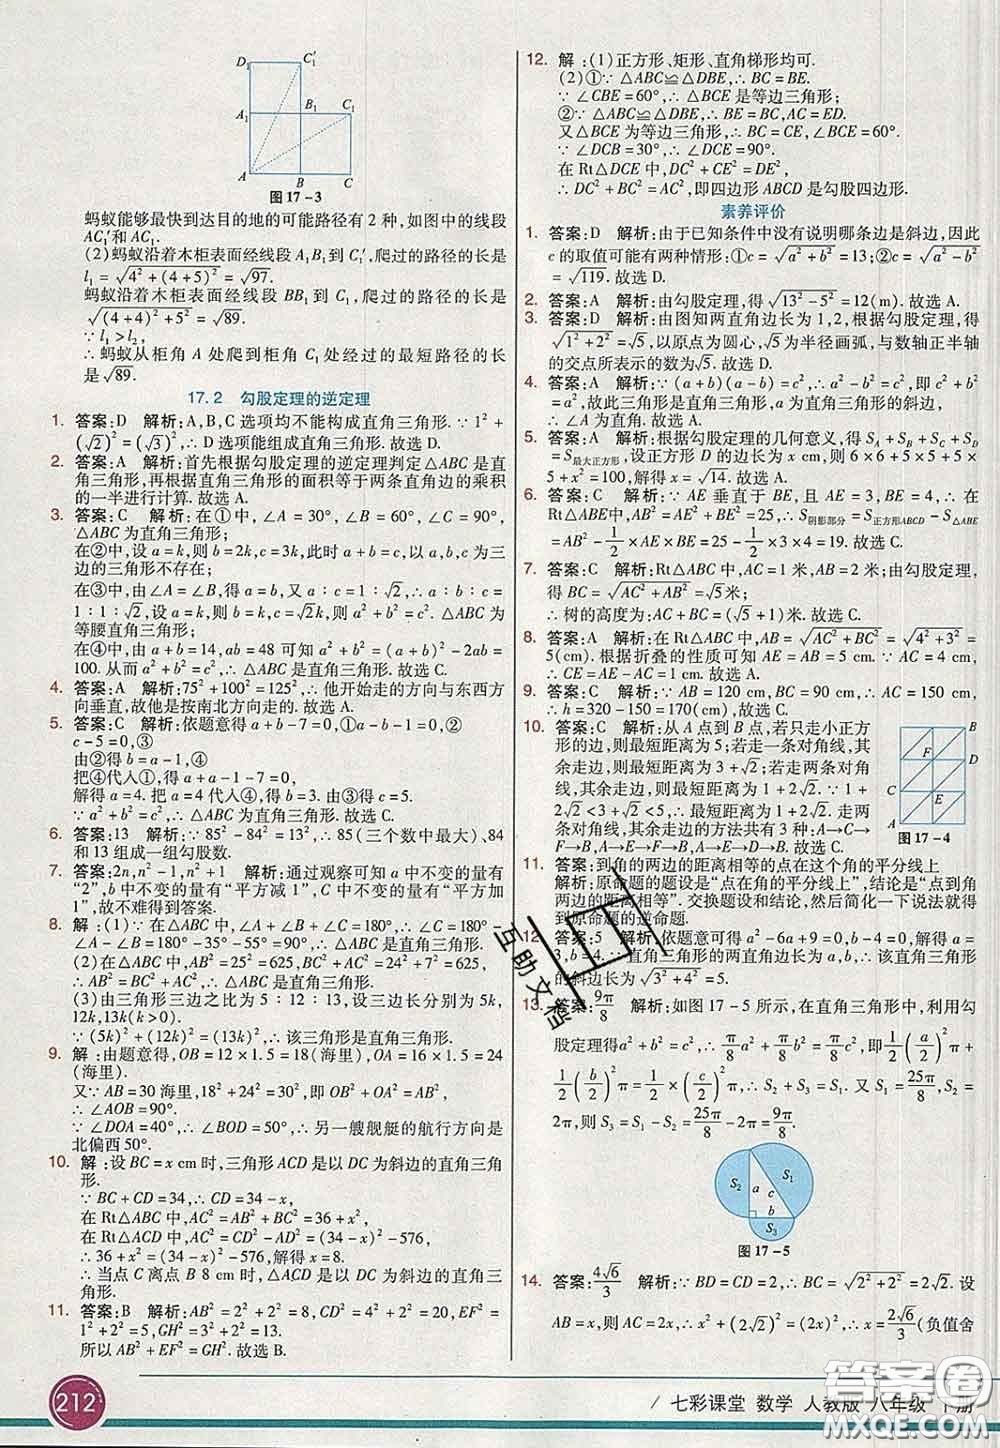 D₁ C₁′
A₁ B₁ C₁
A B C
图17-3
蚂蚁能够最快到达目的地的可能路径有2种,如图中的线段
AC₁′和AC₁.
(2)蚂蚁沿着木柜表面经线段A₁B₁到C₁′,爬过的路径的长是
l₁=√(4²+(4+5)²)=√97.
蚂蚁沿着木柜表面经线段BB₁到C₁,爬过的路径的长是
√((4+4)²+5²)=√89.
∵l₁>l₂,
∴蚂蚁从柜角A处爬到柜角C₁处经过的最短路径的长是
√89.
17.2 勾股定理的逆定理
1. 答案:D 解析:A,B,C选项均不能构成直角三角形.∵1²+
(√2)²=(√3)²,∴D选项能组成直角三角形.故选D.
2. 答案:A 解析:首先根据勾股定理的逆定理判定△ABC是直
角三角形,再根据直角三角形的面积等于两条直角边的乘积
的一半进行计算.故选A.
3. 答案:C 解析:在①中,∠A=30°,∠B=60°,∠C=90°,
△ABC为直角三角形;
在②中,设a=k,则b=2k,c=3k,此时a+b=c,以a,b,c为三
边的三角形不存在;
在③中,由∠A=∠B,得a=b,又∵a:c=1:√2,∴a:b:c=
1:1:√2,可设a=b=k,c=√2k,则a²+b²=c².∴△ABC为
等腰直角三角形;
在④中,由a+b=14,ab=48可知a²+b²=(a+b)²-2ab=
100.从而a²+b²=c².∴△ABC是直角三角形.故选C.
4. 答案:A 解析:75²+100²=125²,∴他开始走的方向与东西方
向垂直,故他是按南北方向走的.故选A.
5. 答案:C 解析:依题意得a+b-7=0,①a-b-1=0,②
c-5=0,③
由②得b=a-1,④
把④代入①,得a+a-1-7=0,
解得a=4.把a=4代入④得b=3.由③得c=5.
∵a²+b²=c²,∴该三角形是直角三角形.故选C.
6. 答案:13 解析:∵85²-84²=13²,∴85(三个数中最大)、84
和13组成一组勾股数.
7. 答案:2n,n²-1,n²+1 解析:通过观察可知a中不变的量有
“2”,b中不变的量有“平方减1”,c中不变的量有“平方加
1”,故不难得到答案.
8. 解:(1)∵在△ABC中,∠A+∠B+∠C=180°,∴∠C=180°-
∠A-∠B=180°-35°-55°=90°,∴△ABC是直角三角形.
(2)在△ABC中,AB²=25²=625,AC²+BC²=24²+7²=625,
∴AB²=AC²+BC²,∴△ABC是直角三角形.
(3)由三角形三边之比为5:12:13,设三边长分别为5k,
12k,13k(k>0).
∵(5k)²+(12k)²=(13k)²,∴该三角形是直角三角形.
9. 解:由题意得,OB=12×1.5=18(海里),OA=16×1.5=24
(海里).
又∵AB=30海里,18²+24²=30²,即OB²+OA²=AB²,
∴∠AOB=90°.
∵∠DOA=40°,∴∠BOD=50°,∴另一艘舰艇的航行方向是
北偏西50°.
10. 解:设BC=x cm时,三角形ACD是以DC为斜边的直角三角
形.
∵BC+CD=34,∴CD=34-x,
在Rt△ABC中,AC²=AB²+BC²=36+x²,
在Rt△ACD中,AC²=CD²-AD²=(34-x)²-576,
∴36+x²=(34-x)²-576,解得x=8.
∴当点C离点B 8 cm时,△ACD是以DC为斜边的直角三
角形.
11. 答案:B 解析:AB²=2²+2²=8,CD²=4²+2²=20,EF²=
1²+2²=5,GH²=3²+2²=13.
所以AB²+EF²=GH².故选B.
12. 解:(1)正方形、矩形、直角梯形均可.
(2)①∵△ABC≌△DBE,∴BC=BE.
∵∠CBE=60°,∴△CBE是等边三角形;
②∵△ABC≌△DBE,∴BE=BC,AC=ED.
又△BCE为等边三角形,∴BC=CE,∠BCE=60°.
∵∠DCB=30°,∴∠DCE=90°.
在Rt△DCE中,DC²+CE²=DE²
∴DC²+BC²=AC²,即四边形ABCD是勾股四边形.
素养评价
1. 答案:D 解析:由于已知条件中没有说明哪条边是斜边,因此
c的取值可能有两种情形:①c=√(a²+b²)=13;②c=√(a²-b²)
=√119.故选D.
2. 答案:A 解析:由勾股定理,得√(13²-5²)=12(m).故选A.
3. 答案:D 解析:由图知两直角边长为1,2,根据勾股定理,得
√(1²+2²)=√5,以原点为圆心,√5为半径画弧,与数轴正半轴
的交点所表示的数为√5.故选D.
4. 答案:A 解析:∵(a+b)(a-b)=c²,∴a²-b²=c²,即c²+b²
=a²,故此三角形是直角三角形,a为直角三角形的斜边,
∴∠A为直角.故选A.
5. 答案:A 解析:根据勾股定理的几何意义,得S_A+S_B+S_C+S_D
=S最大正方形,设正方形D的边长为x cm,则6×6+5×5+5×
5+x²=100,解得x=√14.故选A.
6. 答案:C 解析:∵AE垂直于BE,且AE=3,BE=4,∴在
Rt△ABE中,AB²=AE²+BE²=25,∴S阴影部分=S正方形ABCD-S△ABE
=AB²-1/2×AE×BE=25-1/2×3×4=19.故选C.
7. 答案:C 解析:Rt△ABC中,AC=1米,AB=2米;由勾股定理,
得BC=√(AC²+AB²)=√5米;
∴树的高度为:AC+BC=(√5+1)米.故选C.
8. 答案:A 解析:在Rt△ABC中,AB=√(AC²+BC²)=√(4²+3²)=
5(cm).根据折叠的性质可知AE=AB=5 cm.∵AC=4 cm,
∴CE=AE-AC=1 cm.故选A.
9. 答案:C 解析:∵AB=120 cm,BC=90 cm,∴AC=150 cm,
∴h=320-150=170(cm).故选C.
10. 答案:C 解析:从A点到B点,若只走小正方
形的边,则最短距离为5;若走一条对角线,其
余走边,则最短距离为3+√2;若走两条对角
线,其余走边,则最短距离为1+2√2.∵1+
2√2<3+√2<5,∴最短距离为1+2√2.走两
条对角线,其余走边的方法共有3种:A→C→
F→B,A→E→F→B,A→E→D→B.故选C.
B
F D
C E
A
图17-4
11. 答案:到角的两边的距离相等的点在这个角的平分线上
解析:原命题的题设是“点在角的平分线上”,结论是“点到角
两边的距离相等”.交换题设和结论,然后简化一下说法就得
到原命题的逆命题.
12. 答案:5 解析:依题意可得a²-6a+9=0,b-4=0.解得a=
3,b=4.∵直角三角形的两直角边长为a,b,∴该直角三角形
的斜边长为√(3²+4²)=5.
13. 答案:9π/8 解析:如图17-5所示,在直角三角形中,利用勾
股定理得a²+b²=c²,∴π/8a²+π/8b²=π/8c²,即1/2(a/2)²π+
1/2(b/2)²π=1/2×(c/2)²π,∴S₂+S₃=S₁.又S₁=25π/8,S₂
=2π,则S₃=S₁-S₂=25π/8-2π=9π/8.
S₂ S₁ a c b S₃
图17-5
14. 答案:4√6/3 解析:∵BD=CD=2,∴BC=√(2²+2²)=2√2.设
AB=x,则AC=2x,∴x²+(2√2)²=(2x)²,∴x=2√6/3(负值舍
互助文档
212
七彩课堂 数学 人教版 八年级 下册
答案圈
MXQE.COM